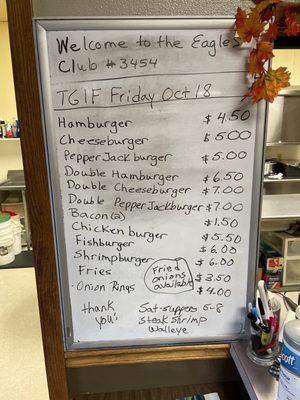 Welcome to the Eagles
Club #3454
TGIF Friday Oct 18
Hamburger $4.50
Cheeseburger $5.00
Pepper Jack burger $5.00
Double Hamburger $6.50
Double Cheeseburger $7.00
Double Pepper Jack burger $7.00
Bacon (2) $1.50
Chicken burger $5.50
Fishburger $6.00
Shrimpburger $6.00
Fries $3.50
Onion Rings $4.00
Fried
onions
available
thank
you!
Sat-suppers 5-8
Steak Shrimp
Walleye